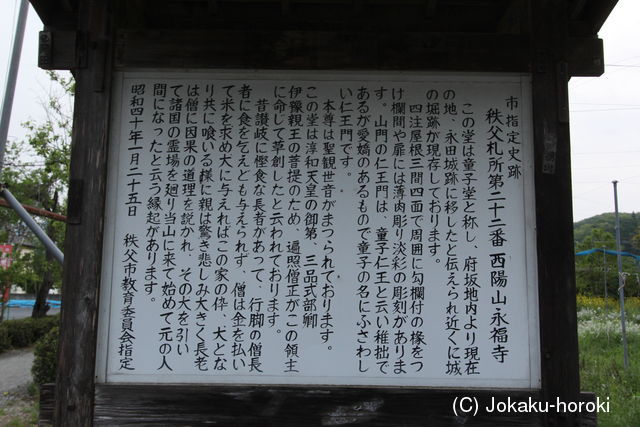 市指定史跡
秩父札所第二十二番 西陽山永福寺
この堂は童子堂と称し、府坂地内より現在
の地、永田城跡に移したと伝えられ近くに城
の堀跡が現存しております。
四注屋根三間四面で周囲に勾欄付の椽をつ
け欄間や扉には薄肉彫り淡彩の彫刻がありま
す。山門の仁王門は、童子仁王と云い稚拙で
あるが愛嬌のあるもので童子の名にふさわし
い仁王門です。
本尊は聖観世音がまつられております。
この堂は淳和天皇の御第、三品式部卿
伊豫親王の菩提のため、遍照僧正がこの領主
に命じて草創したと云われております。
昔讃岐に慳貪な長者があって、行脚の僧長
者に食を乞えども与えられず、僧は金を払い
て米を求め犬に与えればこの家の倅、犬とな
り共に喰いる様に親は驚き悲しみ大きく長老
は僧に因果の道理を説かれ、その犬を引い
て諸国の霊場を廻り当山に来て始めて元の人
間になったと云う縁起があります。
昭和四十年一月二十五日 秩父市教育委員会指定
(C) Jokaku-horoki